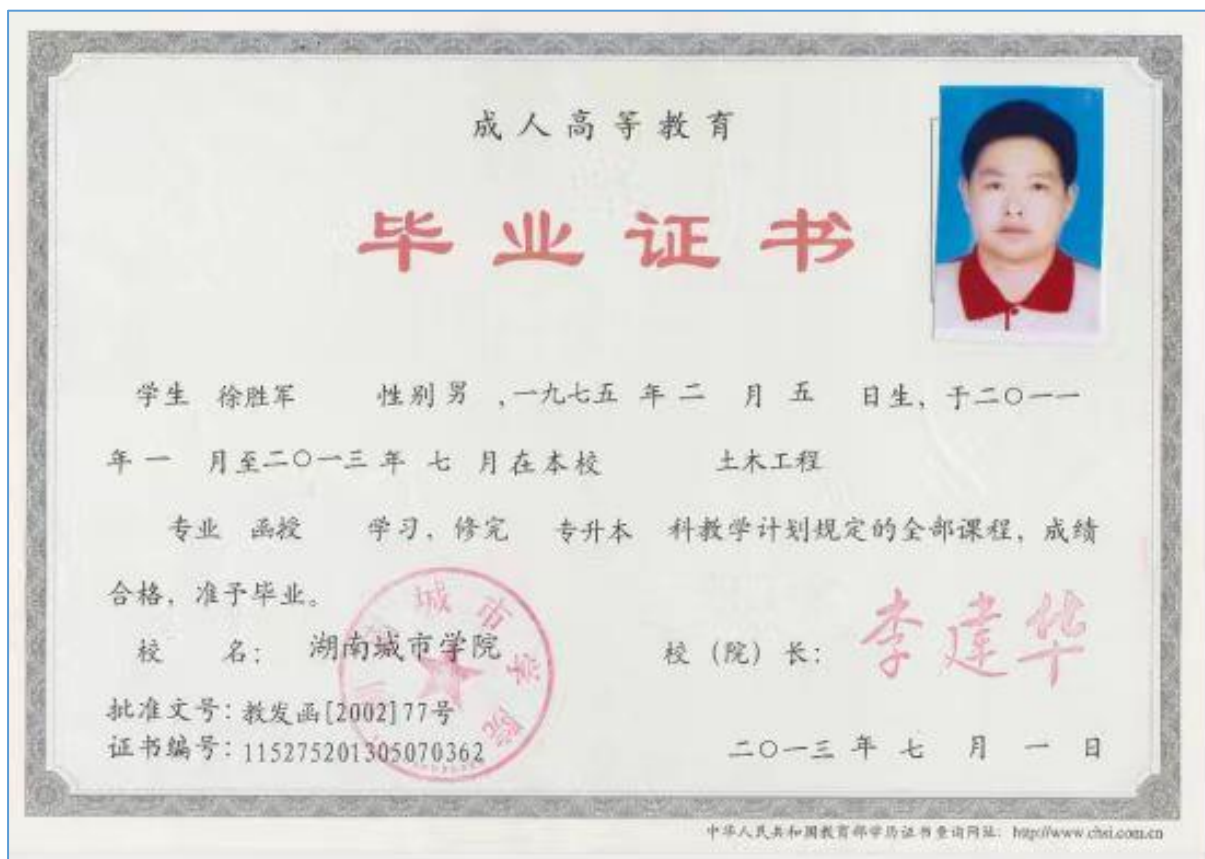 成人高等教育
毕业证书
学生 徐胜军 性别 男 ,一九七五 年 二 月 五 日生, 于二〇一一
年 一 月至二〇一三 年 七 月在本校 土木工程
专业 函授 学习, 修完 专升本 科教学计划规定的全部课程, 成绩
合格, 准予毕业。
校 名: 湖南城市学院
校 (院) 长: 李建华
批准文号: 教发函[2002]77号
证书编号: 115275201305070362
二〇一三 年 七 月 一 日
城市学院
中华人民共和国教育部学历证书查询网址: http://www.chsi.com.cn